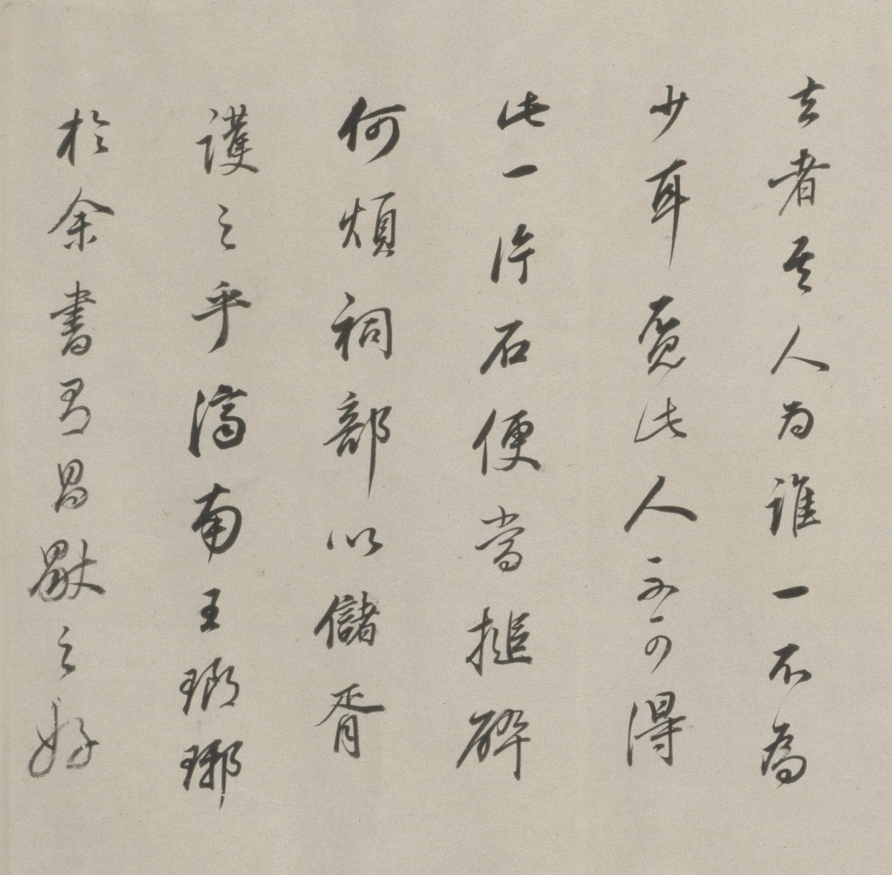 去者其人为誰一不為
少耳覓此人不可得
此一片石便當搥碎
何煩祠部以儲胥
護之乎濟南王瑯琊
於余書有昌歜之好